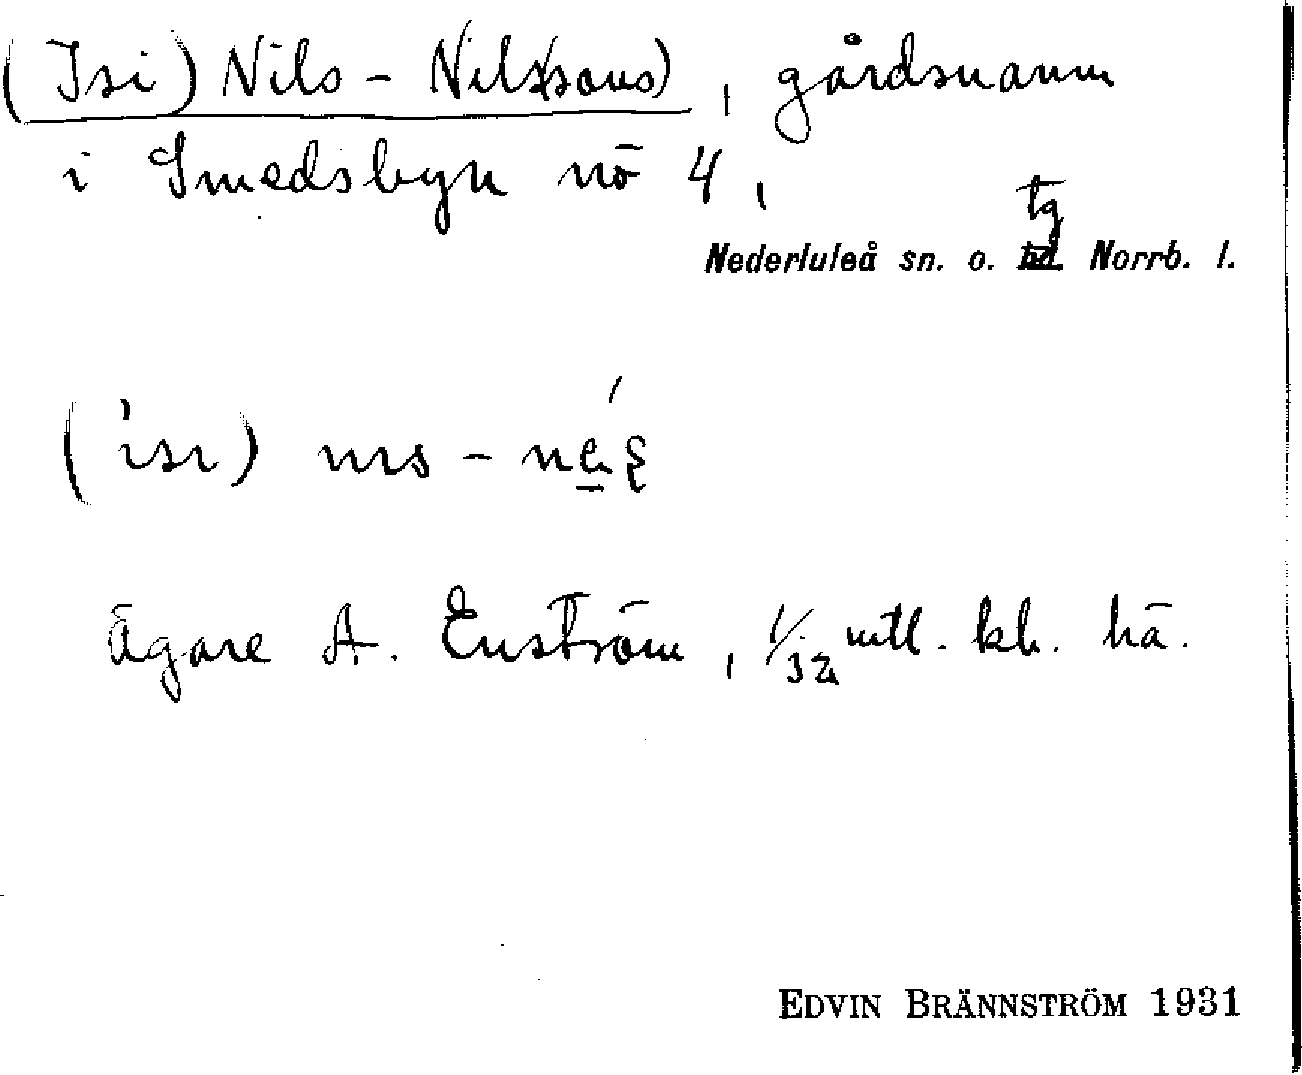 (Isi) Nils-Nilssons), gårdsnamn
i Smedsbyn nō 4,
tg
Nederluleå sn. o. hd. Norrb. l.
(ısı) nıs - ne̲ʂ
ägare A. Enström, 1/32 mtl. kh. hä.
EDVIN BRÄNNSTRÖM 1931